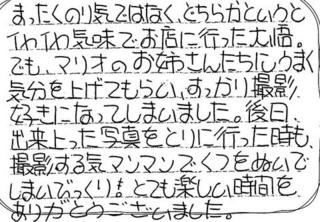 まったくのり気ではなく、どちらかというと
イヤイヤ気味でお店に行った大悟。
でも、マリオのお姉さんたちにうまく
気分を上げてもらい、すっかり撮影
好きになってしまいました。後日、
出来上った写真をとりに行った時も、
撮影する気マンマンでくつをぬいで
しまいびっくり!とても楽しい時間を
ありがとうございました。